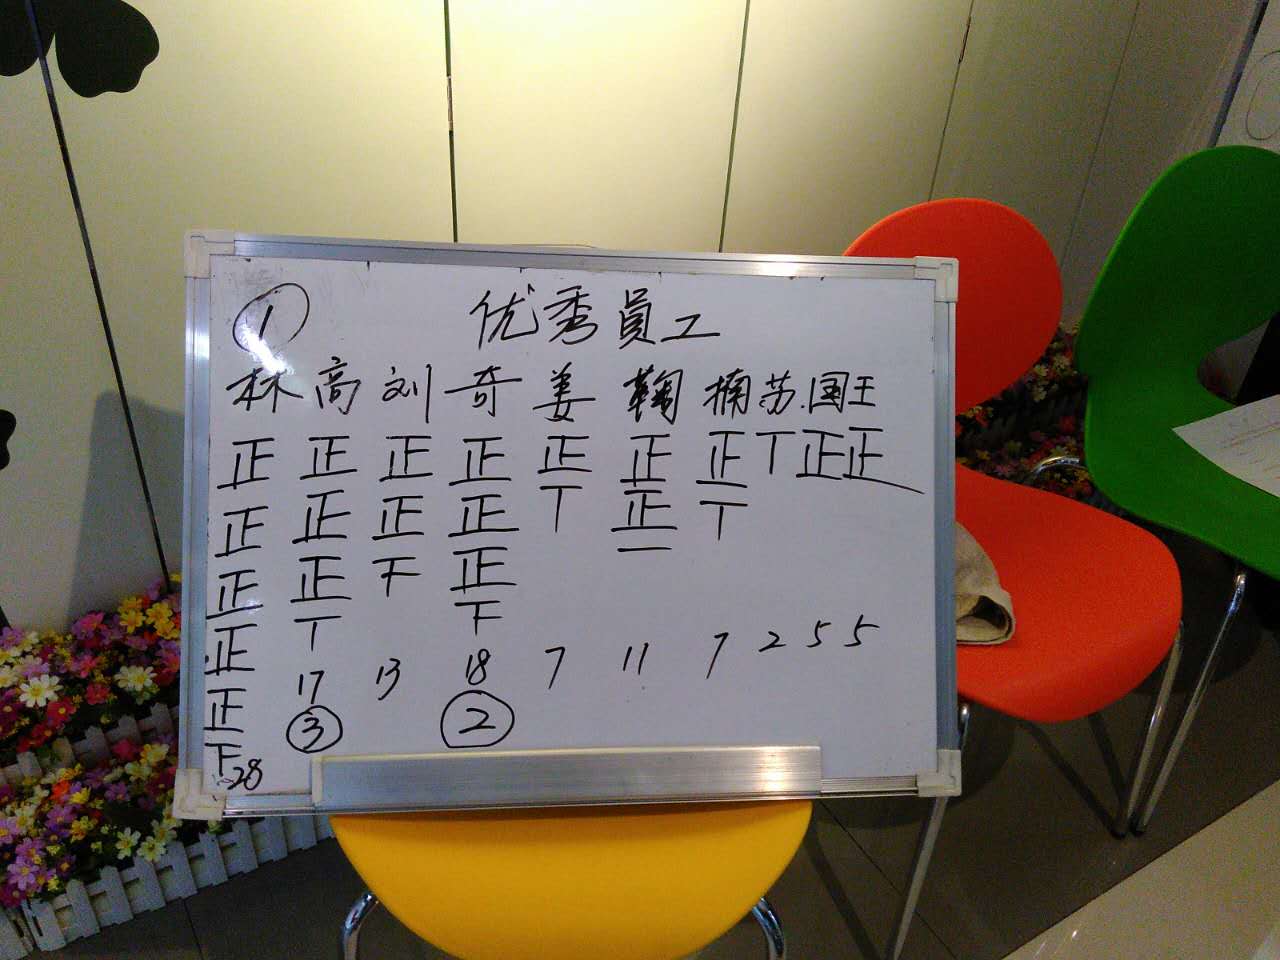 ① 优秀員工
林 高 刘 奇 姜 鞠 楠 苏.国王
正 正 正 正 正 正 正 丅 正 正
正 正 正 正 丅 正 丅
正 正 下 正 一
正 丅 下
正 17 13 18 7 11 7 2 5 5
③ ②
下 28